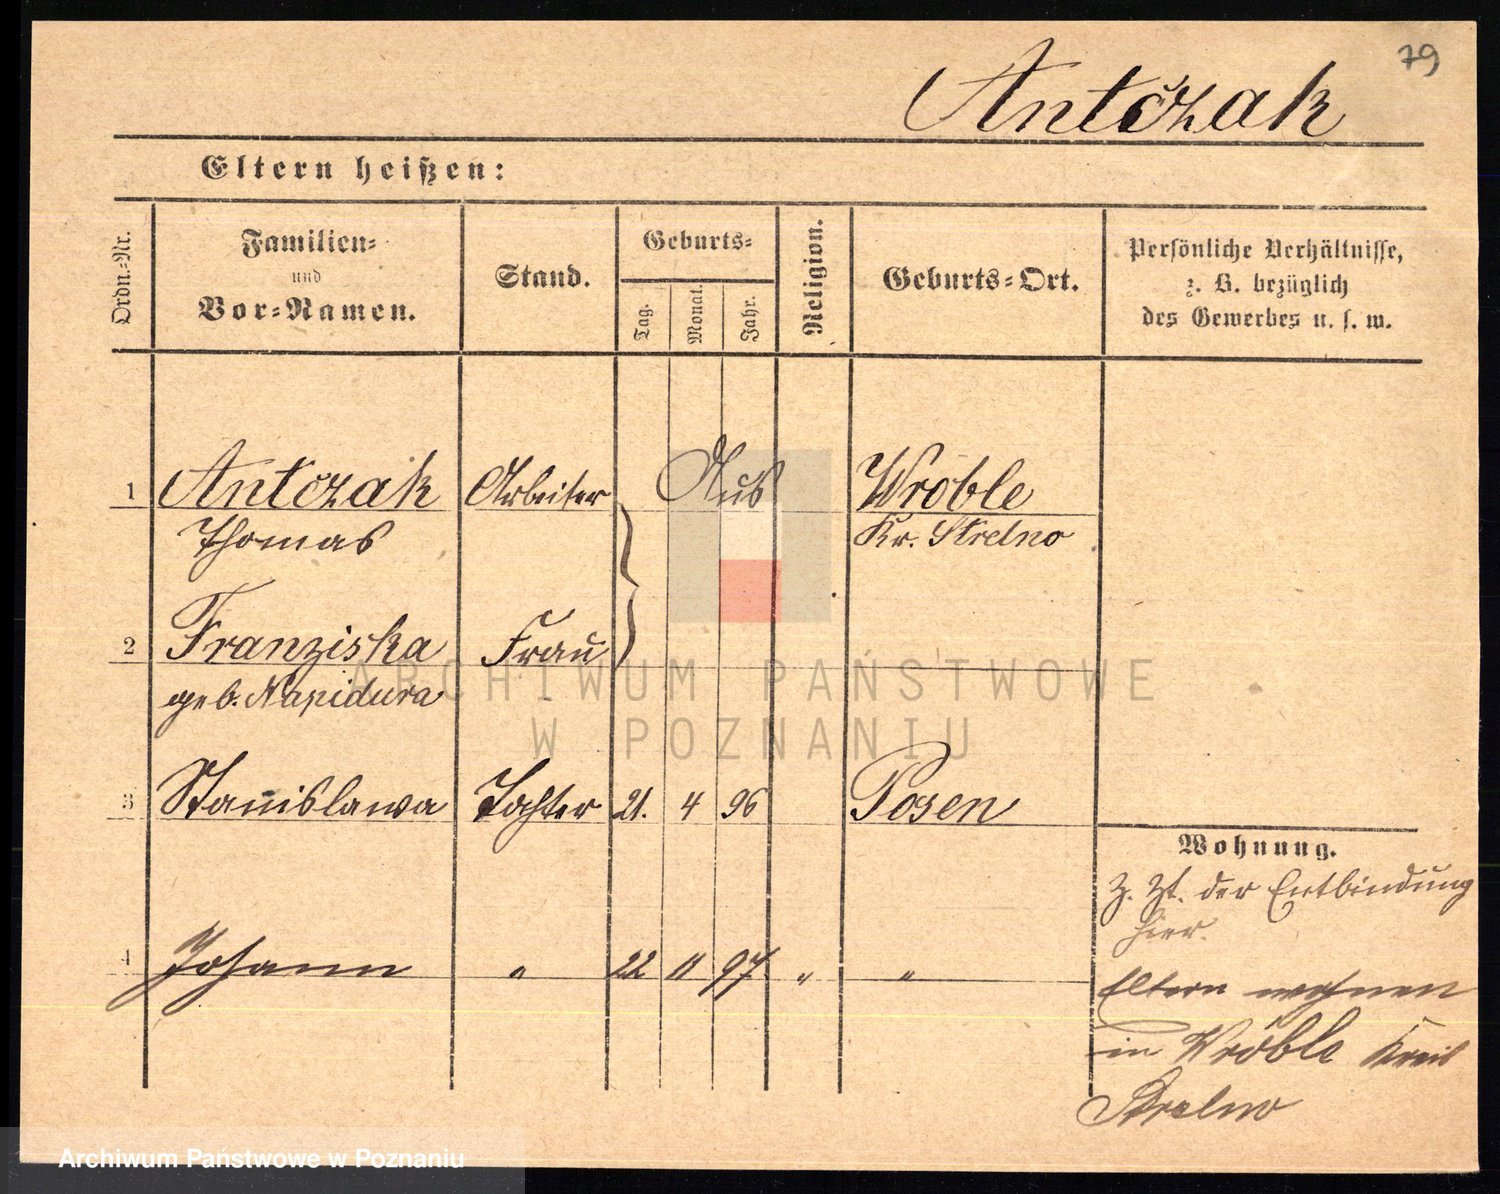 79
Antczak
Eltern heißen:
Ordn.-Nr.
Familien-
und
Vor-Namen.
Stand.
Geburts-
Tag.
Monat.
Jahr.
Religion.
Geburts-Ort.
Persönliche Verhältnisse,
z. B. bezüglich
des Gewerbes u. s. w.
1 Antczak Arbeiter Aus Wróble
Thomas Kr. Strelno
2 Franziska Frau
geb. Napidura
3 Stanislawa Tochter 21. 4 96 Posen
Wohnung.
z. Zt. der Entbindung
hier.
4 Johann " 22 11 97 " "
Eltern wohnen
in Wróble Kreis
Strelno
ARCHIWUM PAŃSTWOWE
W POZNANIU
Archiwum Państwowe w Poznaniu